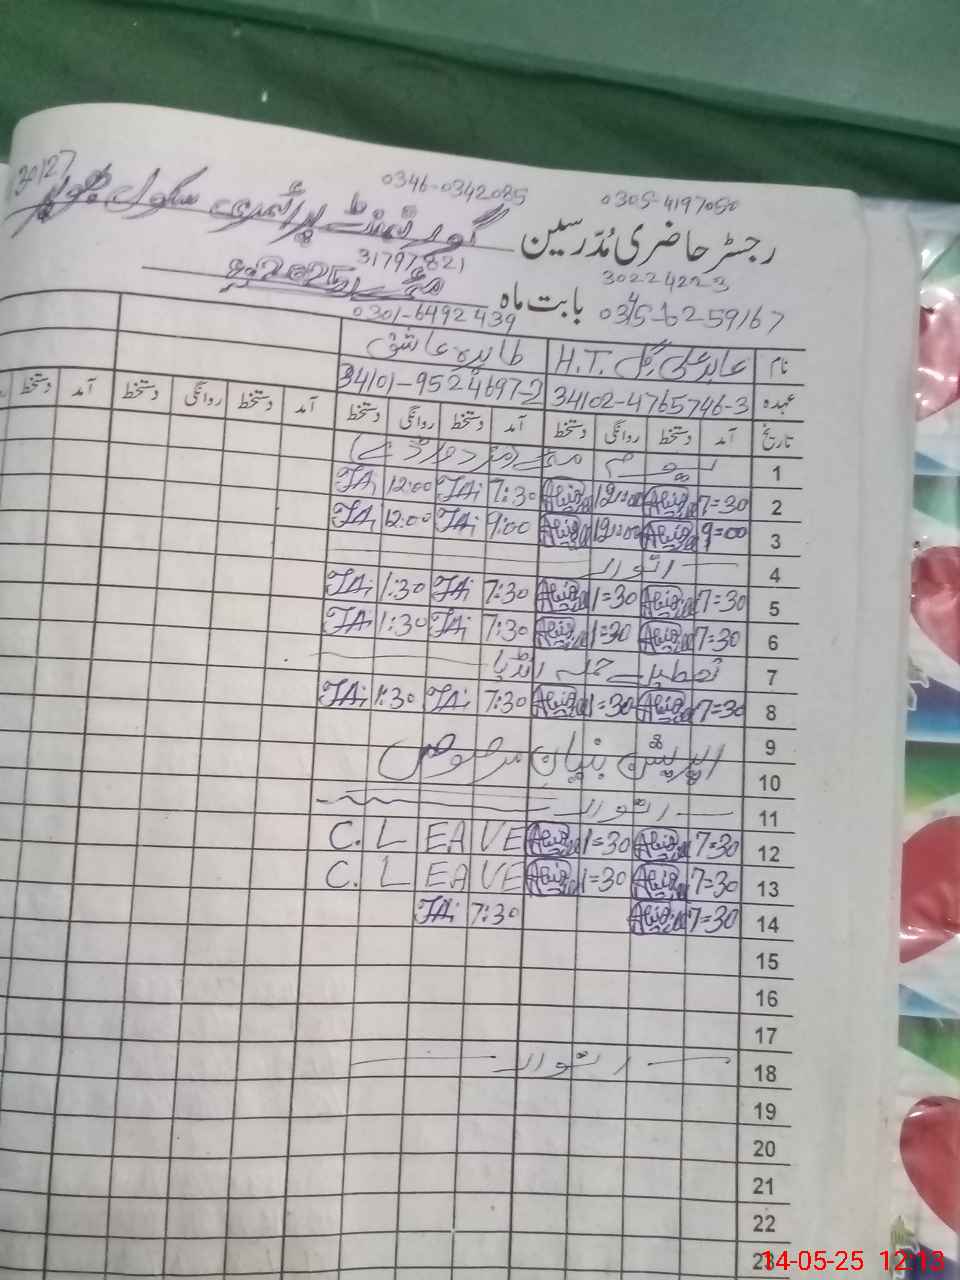 30127
0346-0342085 0305-4197050
رجسٹر حاضری مُدّرسین گورنمنٹ پرائمری سکول
31797821
3022422-3
بابت ماہ مئی 2025ء
0301-6492439 0345-6259167
نام عابد علی گل H.T. طاہرہ عاشق
عہدہ 34102-4765746-3 34101-9524697-2
تاریخ آمد دستخط روانگی دستخط آمد دستخط روانگی دستخط آمد دستخط روانگی دستخط آمد دستخط
1 یوم مئی (مزدور ڈے)
2 7=30 Abid 12:00 Abid 7:30 TAi 12:00 TAi
3 9=00 Abid 12:00 Abid 9:00 TAi 12:00 TAi
4 اتوار
5 7=30 Abid 1=30 Abid 7:30 TAi 1:30 TAi
6 7=30 Abid 1=30 Abid 7:30 TAi 1:30 TAi
7 تعطیل حملہ انڈیا
8 7=30 Abid 1=30 Abid 7:30 TAi 1:30 TAi
9
10 اپریشن بنیان مرصوص
11 اتوار
12 7=30 Abid 1=30 Abid C. LEAVE
13 7=30 Abid 1=30 Abid C. LEAVE
14 7=30 Abid 7:30 TAi
15
16
17
18 اتوار
19
20
21
22
23
14-05-25 12:13